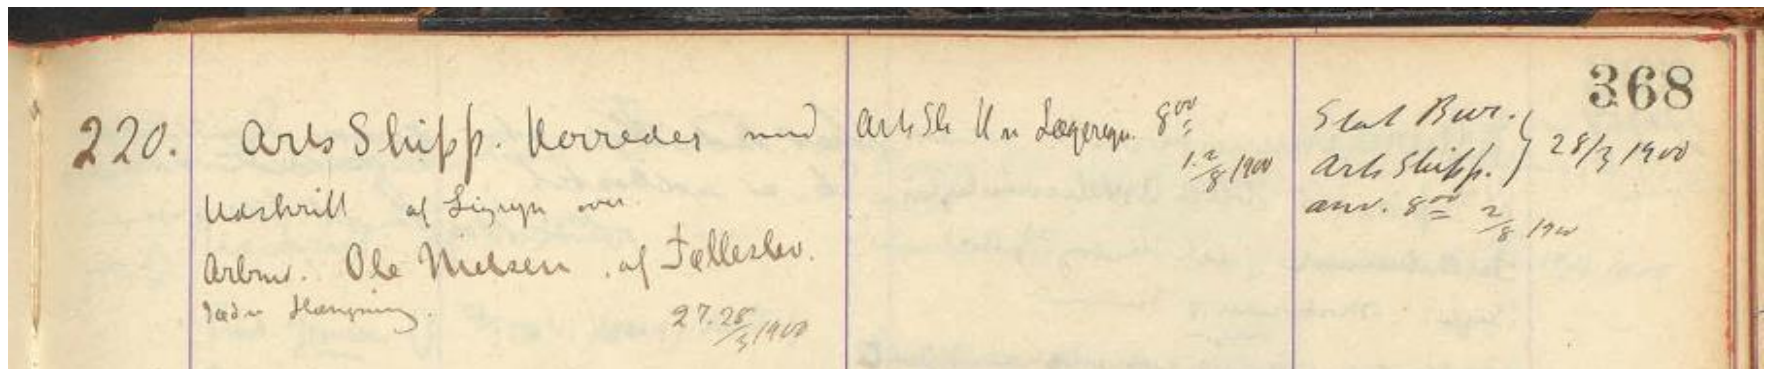 368
220. Arts Skipp. Herredes med
Udskrift af Ligsyn over
Arbm. Ole Nielsen af Fælleslev.
død v Hængning. 27.28/3 1900
Arts Sk m Lægeregn. 8 00
1.2/8 1900
Stat Bur.
Arts Skipp. } 28/3 1900
anv. 8 00 2/8 1900